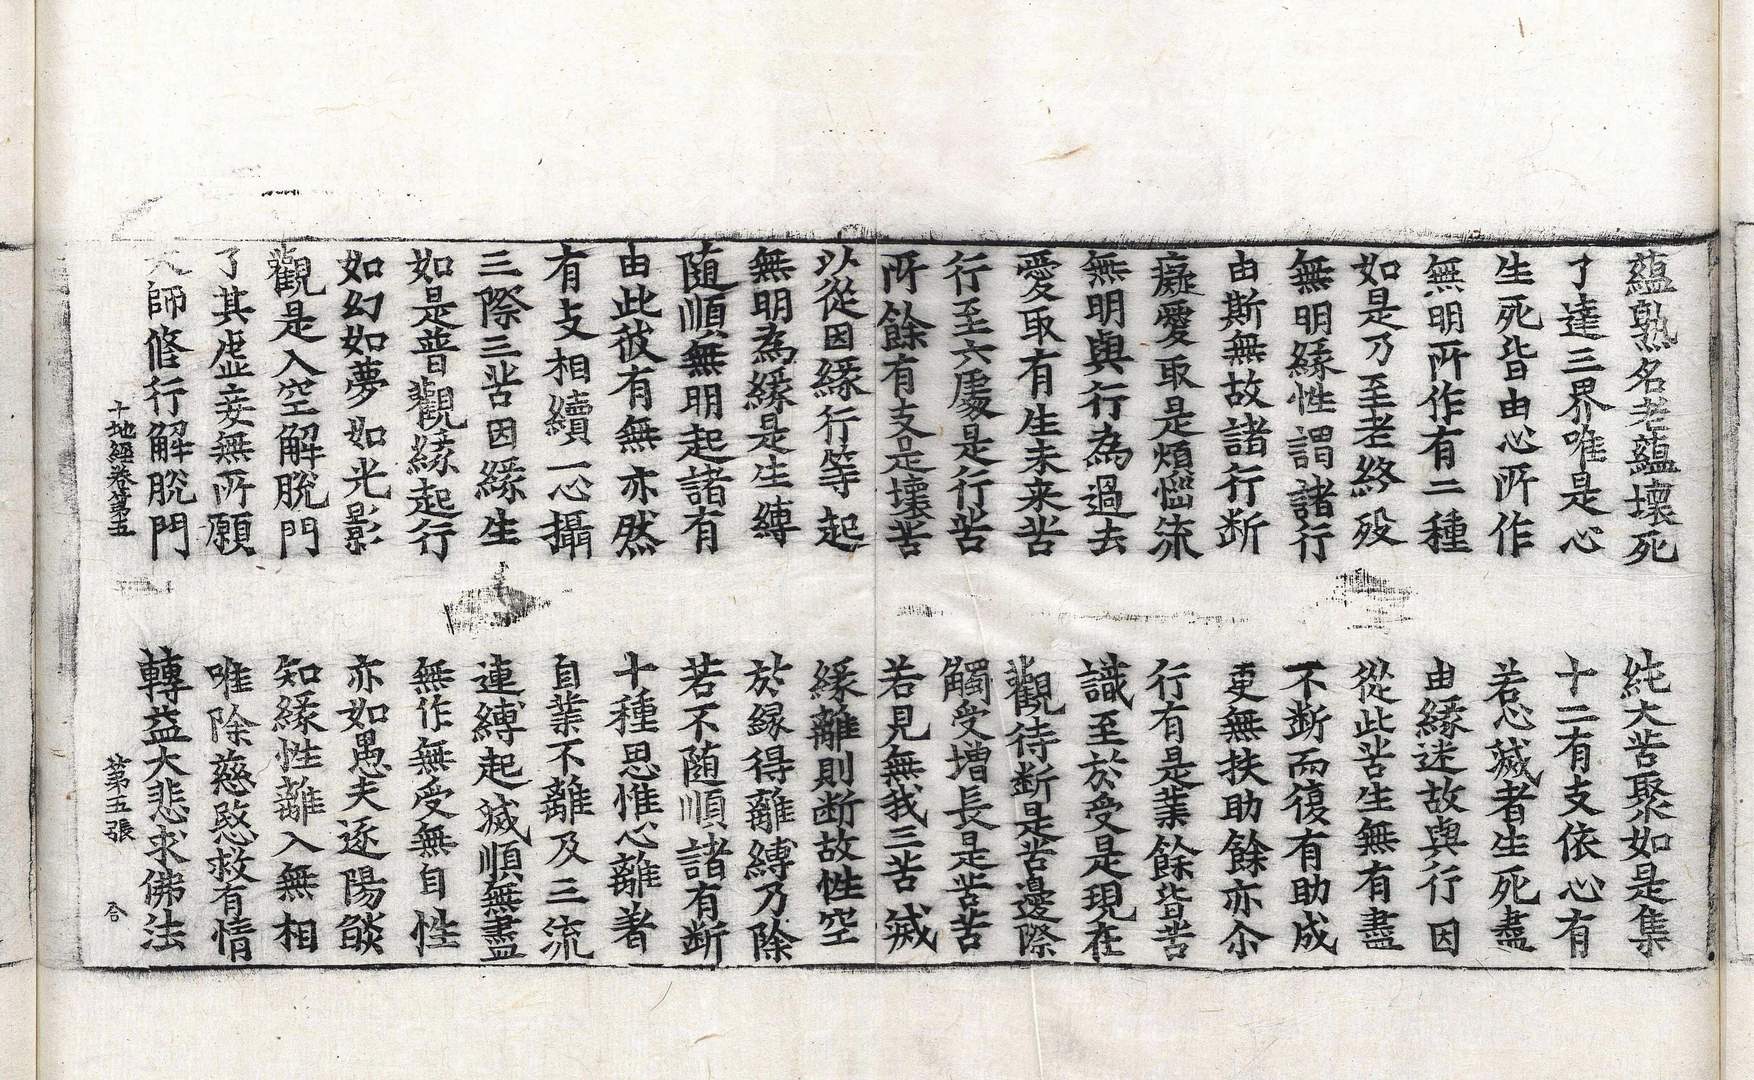 蘊熟名老蘊壞死　純大苦聚如是集
了達三界唯是心　十二有支依心有
生死皆由心所作　若心滅者生死盡
無明所作有二種　由縁迷故與行因
如是乃至老終歿　從此苦生無有盡
無明緣性謂諸行　不断而復有助成
由斯無故諸行断　更無扶助餘亦尒
癡愛取是煩惱流　行有是業餘皆苦
無明與行為過去　識至於受是現在
愛取有生未来苦　觀待断是苦邊際
行至六處是行苦　觸受增長是苦苦
所餘有支是壞苦　若見無我三苦滅
以從因緣行等起　緣離則断故性空
無明為緣是生縛　於縁得離縛乃除
随順無明起諸有　若不随順諸有断
由此彼有無亦然　十種思惟心離著
有支相續一心攝　自業不離及三流
三際三苦因緣生　連縛起滅順無盡
如是普觀緣起行　無作無受無自性
如幻如夢如光影　亦如愚夫逐陽燄
觀是入空解脫門　知緣性離入無相
了其虛妄無所願　唯除慈愍救有情
師修行解脫門　轉益大悲求佛法
十地經卷第五　第五張　合